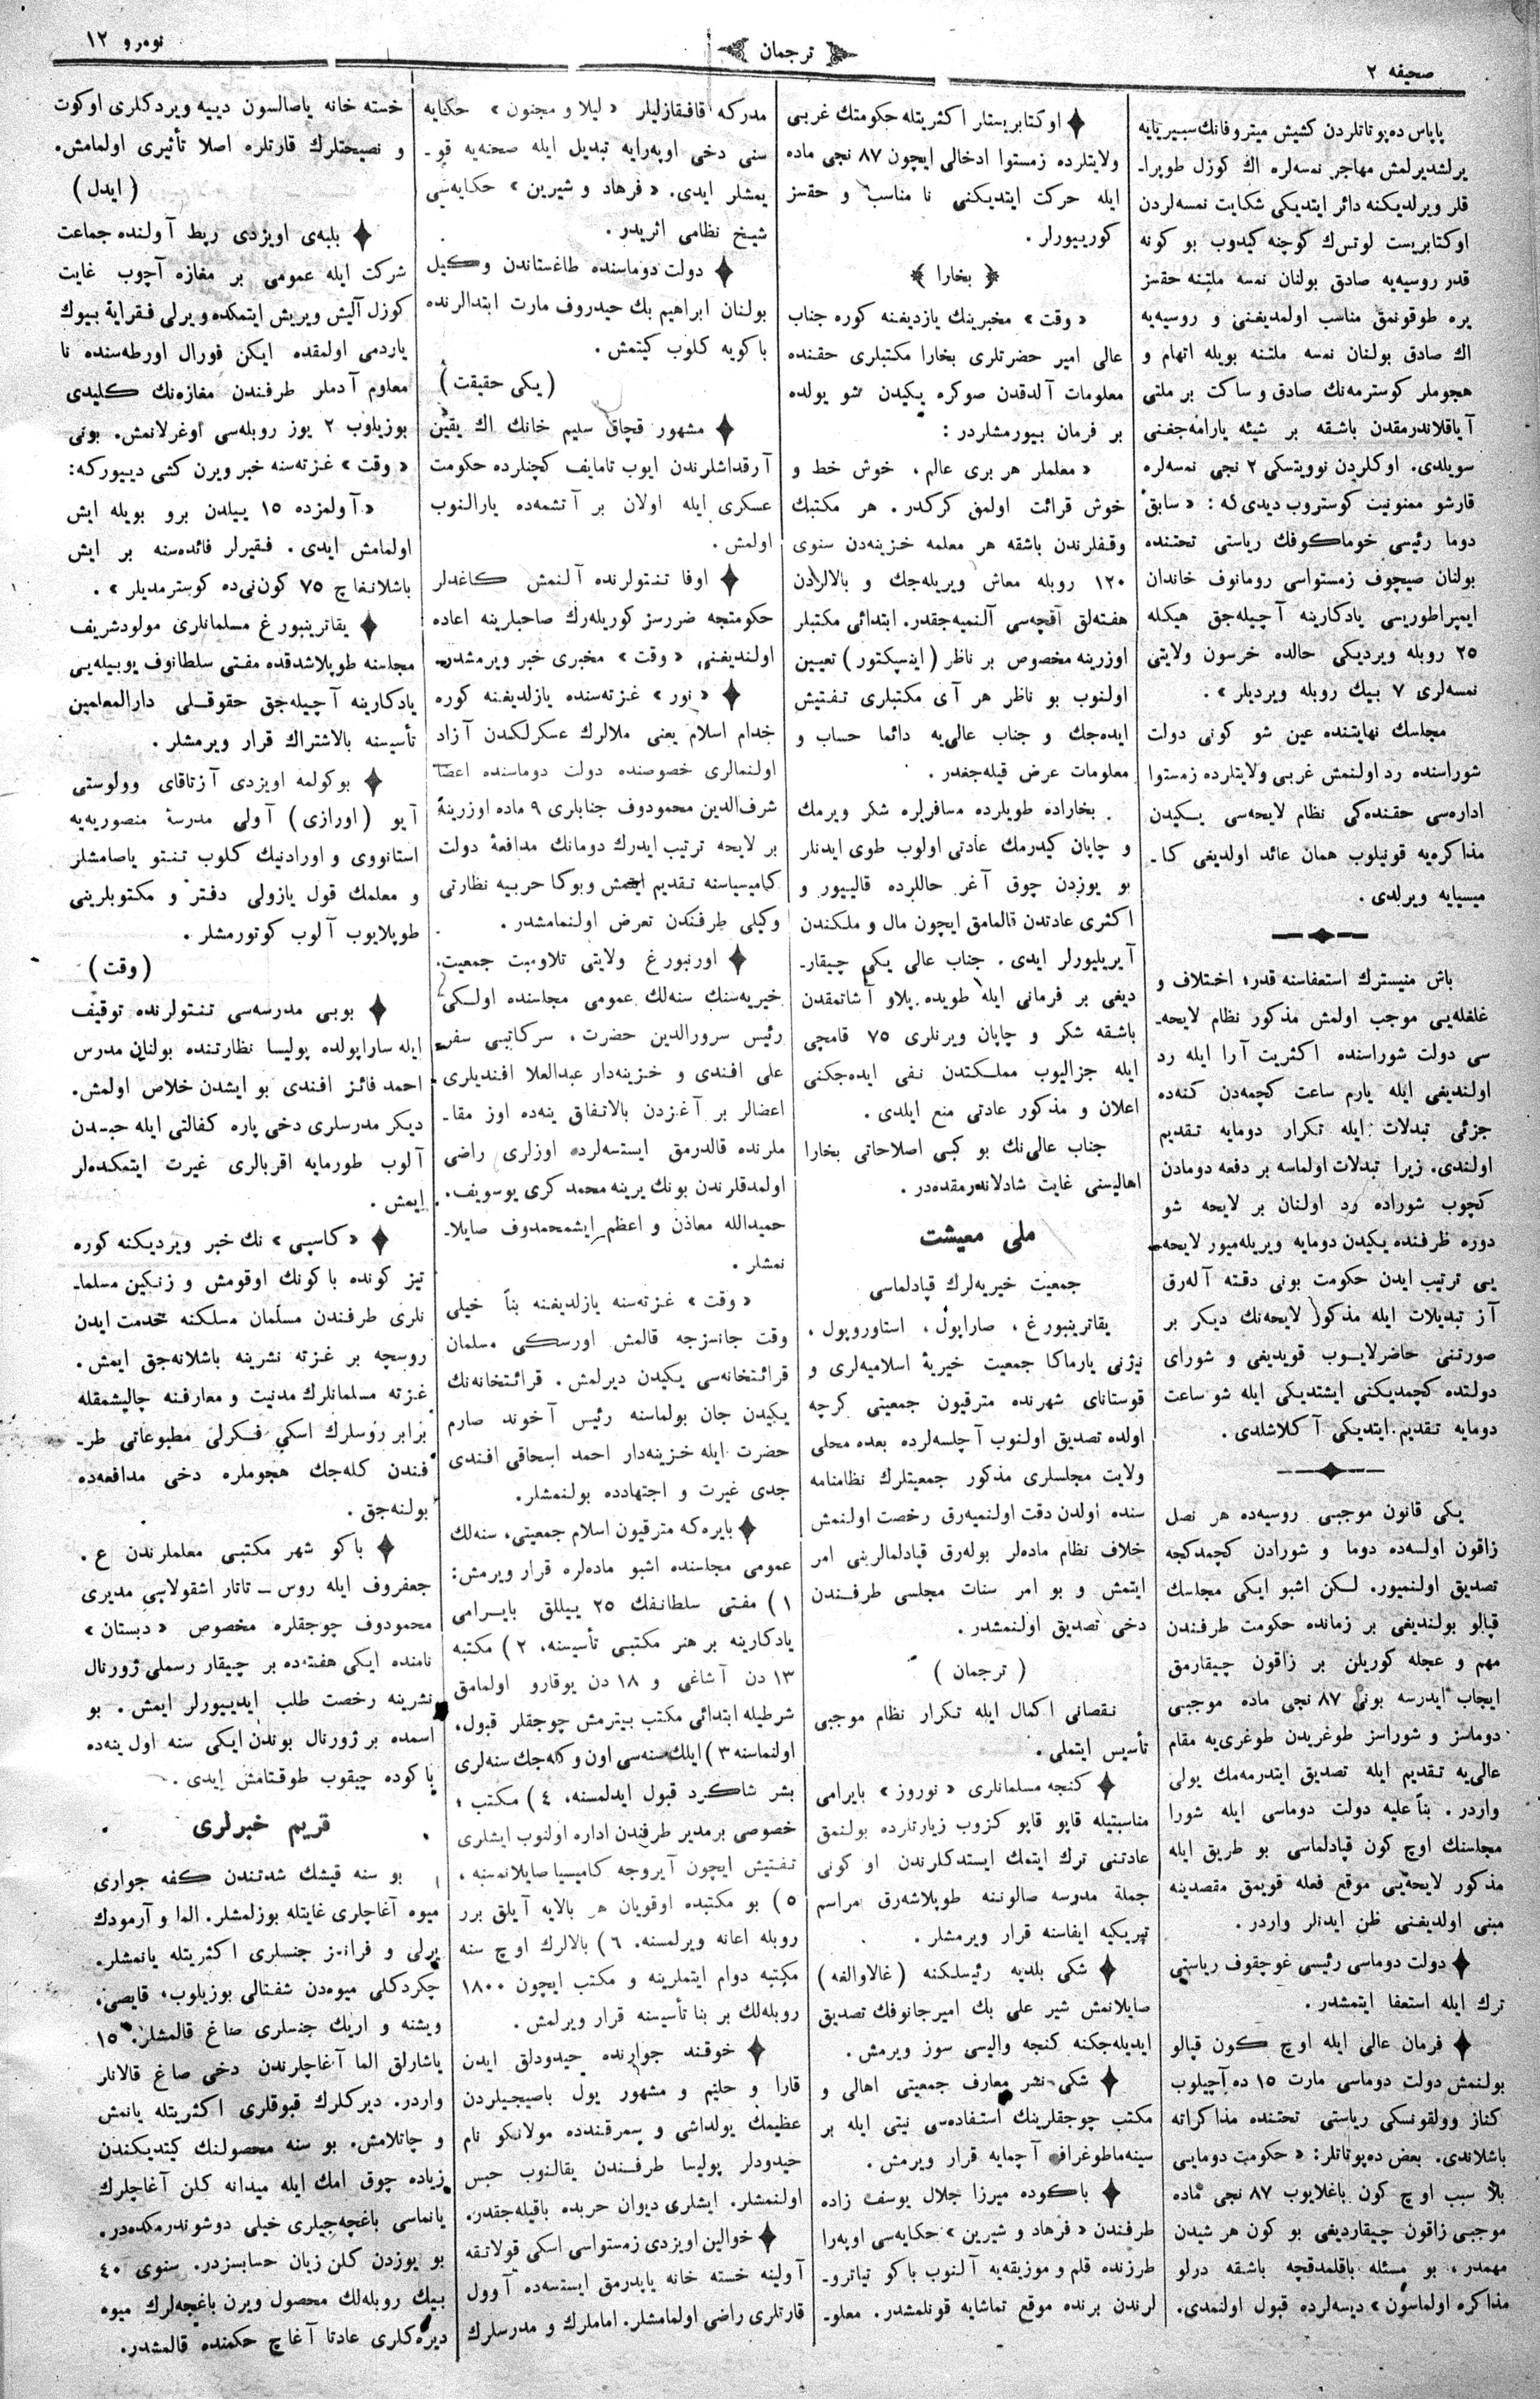 صحیفه ٢
ترجمان
نومرو ١٢
پاپاس دەپوتاتلردن کشیش میتروفانك سیبریایه
یرلشدیرلمش مهاجر نمسه‌لره اك کوزل طوپرا-
قلر ویرلدیکنه دائر ایتدیکی شکایت نمسه‌لردن
اوکتابریست لوتس‌ك کوچنه کیدوب بو کونه
قدر روسیه‌یه صادق بولنان نمسه ملتنه حقسز
یره طوقونمق مناسب اولمدیغنی و روسیه‌یه
اك صادق بولنان نمسه ملتنه بویله اتهام و
هجوملر کوسترمه‌نك صادق و ساکت بر ملتی
آیاقلاندرمقدن باشقه بر شیئه یارامه‌جغنی
سویلدی. اوکلردن نوویتسکی ٢ نجی نمسه‌لره
قارشو ممنونیت کوستروب دیدی که: «سابق
دوما رئیسی خوماکوفك ریاستی تحتنده
بولنان صیچوف زمستواسی رومانوف خاندان
ایمپراطوریسی یادکارینه آچیله‌جق هیکله
٢٥ روبله ویردیکی حالده خرسون ولایتی
نمسه‌لری ٧ بیك روبله ویردیلر».
مجلسك نهایتنده عین شو کونی دولت
شوراسنده رد اولنمش غربی ولایتلرده زمستوا
اداره‌سی حقنده‌کی نظام لایحه‌سی یکیدن
مذاکره‌یه قونیلوب همان عائد اولدیغی کا-
میسیایه ویرلدی.
باش منیسترك استعفاسنه قدر، اختلاف و
غلغله‌یی موجب اولمش مذکور نظام لایحه-
سی دولت شوراسنده اکثریت آرا ایله رد
اولندیغی ایله یارم ساعت کچمه‌دن کنه‌ده
جزئی تبدلات ایله تکرار دومایه تقدیم
اولندی. زیرا تبدلات اولماسه بر دفعه دومادن
کچوب شوراده رد اولنان بر لایحه شو
دوره ظرفنده یکیدن دومایه ویریله‌میور لایحه-
یی ترتیب ایدن حکومت بونی دقته آله‌رق
آز تبدیلات ایله مذکور لایحه‌نك دیکر بر
صورتنی حاضرلایوب قویدیغی و شورای
دولتده کچمدیکنی ایشتدیکی ایله شو ساعت
دومایه تقدیم ایتدیکی آکلاشلدی.
یکی قانون موجبی روسیه‌ده هر نصل
زاقون اولسه‌ده دوما و شورادن کچمدکجه
تصدیق اولنمیور. لکن اشبو ایکی مجلسك
قپالو بولندیغی بر زمانده حکومت طرفندن
مهم و عجله کوریلن بر زاقون چیقارمق
ایجاب ایدرسه بونی ٨٧ نجی ماده موجبی
دوماسز و شوراسز طوغریدن طوغری‌یه مقام
عالی‌یه تقدیم ایله تصدیق ایتدرمه‌مك یولی
واردر. بناً علیه دولت دوماسی ایله شورا
مجلسنك اوچ کون قپادلماسی بو طریق ایله
مذکور لایحه‌یی موقع فعله قویمق مقصدینه
مبنی اولدیغنی ظن ایدنلر واردر.
دولت دوماسی رئیسی غوچقوف ریاستی
ترك ایله استعفا ایتمشدر.
فرمان عالی ایله اوچ کون قپالو
بولنمش دولت دوماسی مارت ١٥ ده آچیلوب
کناز وولقونسکی ریاستی تحتنده مذاکراته
باشلاندی. بعض دەپوتاتلر: «حکومت دومایی
بلا سبب اوچ کون باغلایوب ٨٧ نجی ماده
موجبی زاقون چیقاردیغی بو کون هر شیدن
مهمدر، بو مسئله باقلمدقچه باشقه درلو
مذاکره اولماسون» دیسه‌لرده قبول اولنمدی.
اوکتابریستلر اکثریتله حکومتك غربی
ولایتلرده زمستوا ادخالی ایچون ٨٧ نجی ماده
ایله حرکت ایتدیکنی نا مناسب و حقسز
کوریورلر.
﴿ بخارا ﴾
«وقت» مخبرینك یازدیغنه کوره جناب
عالی امیر حضرتلری بخارا مکتبلری حقنده
معلومات آلدقدن صوکره یکیدن شو یولده
بر فرمان بیورمشلردر:
«معلملر هر بری عالم، خوش خط و
خوش قرائت اولمق کرکدر. هر مکتبك
وقفلرندن باشقه هر معلمه خزینه‌دن سنوی
١٢٠ روبله معاش ویریله‌جك و بالالردن
هفته‌لق آقچه‌سی آلنمیه‌جقدر. ابتدائی مکتبلر
اوزرینه مخصوص بر ناظر (اینسپکتور) تعیین
اولنوب بو ناظر هر آی مکتبلری تفتیش
ایده‌جك و جناب عالی‌یه دائما حساب و
معلومات عرض قیله‌جغدر.
بخاراده طویلرده مسافرلره شکر ویرمك
و چاپان کیدرمك عادتی اولوب طوی ایدنلر
بو یوزدن چوق آغر حاللرده قالییور و
اکثری عادتدن قالمامق ایچون مال و ملکندن
آیریلیورلر ایدی. جناب عالی یکی چیقار-
دیغی بر فرمانی ایله طویده پلاو آشاتمقدن
باشقه شکر و چاپان ویرنلری ٧٥ قامچی
ایله جزالیوب مملکتدن نفی ایده‌جکنی
اعلان و مذکور عادتی منع ایلدی.
جناب عالی‌نك بو کبی اصلاحاتی بخارا
اهالیسنی غایت شادلاندرمقده‌در.
ملی معیشت
جمعیت خیریه‌لرك قپادلماسی
یقاترینبورغ، صاراپول، استاوروپول،
نیژنی یارماکا جمعیت خیریهٔ اسلامیه‌لری و
قوستانای شهرنده مترقیون جمعیتی کرچه
اولده تصدیق اولنوب آچلسه‌لرده بعده محلی
ولایت مجلسلری مذکور جمعیتلرك نظامنامه
سنده اولدن دقت اولنمیه‌رق رخصت اولنمش
خلاف نظام ماده‌لر بوله‌رق قپادلمالرینی امر
ایتمش و بو امر سنات مجلسی طرفندن
دخی تصدیق اولنمشدر.
(ترجمان)
نقصانی اکمال ایله تکرار نظام موجبی
تأسیس ایتملی.
کنجه مسلمانلری «نوروز» بایرامی
مناسبتیله قاپو قاپو کزوب زیارتلرده بولنمق
عادتنی ترك ایتمك ایستدکلرندن او کونی
جملهٔ مدرسه صالوننه طوپلاشه‌رق مراسم
تبریکیه ایفاسنه قرار ویرمشلر.
شکی بلدیه رئیسلکنه (غالاوالغه)
صایلانمش شیر علی بك امیرجانوفك تصدیق
ایدیله‌جکنه کنجه والیسی سوز ویرمش.
شکی نشر معارف جمعیتی اهالی و
مکتب چوجقلرینك استفاده‌سی نیتی ایله بر
سینه‌ماطوغراف آچمایه قرار ویرمش.
باکوده میرزا جلال یوسف زاده
طرفندن «فرهاد و شیرین» حکایه‌سی اوپه‌را
طرزنده قلم و موزیقه‌یه آلنوب باکو تیاترو-
لرندن برنده موقع تماشایه قونلمشدر. معلو-
مدرکه قافقازلیلر «لیلا و مجنون» حکایه
سنی دخی اوپه‌رایه تبدیل ایله صحنه‌یه قو-
یمشلر ایدی. «فرهاد و شیرین» حکایه‌سی
شیخ نظامی اثریدر.
دولت دوماسنده طاغستاندن وکیل
بولنان ابراهیم بك حیدروف مارت ابتدالرنده
باکویه کلوب کیتمش.
(یکی حقیقت)
مشهور قچاق سلیم خانك اك یقین
آرقداشلرندن ایوب تامایف کچنلرده حکومت
عسکری ایله اولان بر آتشمه‌ده یارالنوب
اولمش.
اوفا تنتولرنده آلنمش کاغدلر
حکومتجه ضررسز کوریله‌رك صاحبلرینه اعاده
اولندیغنی «وقت» مخبری خبر ویرمشدر.
«نور» غزته‌سنده یازلدیغنه کوره
خدام اسلام یعنی ملالرك عسکرلکدن آزاد
اولنمالری خصوصنده دولت دوماسنده اعضا
شرف‌الدین محمودوف جنابلری ٩ ماده اوزرینه
بر لایحه ترتیب ایدرك دومانك مدافعهٔ دولت
کامیسیاسنه تقدیم ایتمش و بوکا حربیه نظارتی
وکیلی طرفندن تعرض اولنمامشدر.
اورنبورغ ولایتی تلاومبت جمعیت
خیریه‌سنك سنه‌لك عمومی مجلسنده اولکی
رئیس سرورالدین حضرت، سرکاتبی سفر
علی افندی و خزینه‌دار عبدالعلا افندیلری
اعضالر بر آغزدن بالاتفاق ینه‌ده اوز مقا-
ملرنده قالدرمق ایستسه‌لرده اوزلری راضی
اولمدقلرندن بونك یرینه محمد کری یوسویف،
حمیدالله معاذن و اعظم ایشمحمدوف صایلا-
نمشلر.
«وقت» غزته‌سنه یازلدیغنه بناً خیلی
وقت جانسزجه قالمش اورسکی مسلمان
قرائتخانه‌سی یکیدن دیرلمش. قرائتخانه‌نك
یکیدن جان بولماسنه رئیس آخوند صارم
حضرت ایله خزینه‌دار احمد اسحاقی افندی
جدی غیرت و اجتهادده بولنمشلر.
بایره‌که مترقیون اسلام جمعیتی، سنه‌لك
عمومی مجلسنده اشبو ماده‌لره قرار ویرمش:
١) مفتی سلطانفك ٢٥ ییللق بایرامی
یادکارینه بر هنر مکتبی تأسیسنه، ٢) مکتبه
١٣ دن آشاغی و ١٨ دن یوقارو اولمامق
شرطیله ابتدائی مکتب بیترمش چوجقلر قبول
اولنماسنه ٣) ایلك سنه‌سی اون و کله‌جك سنه‌لری
بشر شاکرد قبول ایدلمسنه، ٤) مکتب
خصوصی بر مدیر طرفندن اداره اولنوب ایشلری
تفتیش ایچون آیروجه کامیسیا صایلانمسنه،
٥) بو مکتبده اوقویان هر بالایه آیلق برر
روبله اعانه ویرلمسنه، ٦) بالالرك اوچ سنه
مکتبه دوام ایتملرینه و مکتب ایچون ١٨٠٠
روبله‌لك بر بنا تأسیسنه قرار ویرلمش.
خوقند جوارنده حیدودلق ایدن
قارا و حلیم و مشهور یول باصیجیلردن
عظیمك یولداشی و سمرقندده مولانکو نام
حیدودلر پولیسا طرفندن یقالنوب حبس
اولنمشلر. ایشلری دیوان حربده باقیله‌جقدر.
خوالین اویزدی زمستواسی اسکی قولاتقه
آولینه خسته خانه یاپدرمق ایستسه‌ده آوول
قارتلری راضی اولمامشلر. اماملرك و مدرسلرك
خسته خانه یاصالسون دییه ویردکلری اوکوت
و نصیحتلرك قارتلره اصلا تأثیری اولمامش.
(ایدل)
بلبه‌ی اویزدی ریط آولنده جماعت
شرکت ایله عمومی بر مغازه آچوب غایت
کوزل آلیش ویریش ایتمکده و یرلی فقرایه بیوك
یاردمی اولمقده ایکن فورال اورطه‌سنده نا
معلوم آدملر طرفندن مغازه‌نك کلیدی
بوزیلوب ٢ یوز روبله‌سی اوغرلانمش. بونی
«وقت» غزته‌سنه خبر ویرن کشی دییورکه:
«آولمزده ١٥ ییلدن برو بویله ایش
اولمامش ایدی. فقیرلر فائده‌سنه بر ایش
باشلانغاچ ٧٥ کون‌نی‌ده کوسترمدیلر».
یقاترینبورغ مسلمانلری مولودشریف
مجلسنه طوپلاشدقده مفتی سلطانوف یوبیله‌یی
یادکارینه آچیله‌جق حقوقلی دارالمعلمین
تأسیسنه بالاشتراك قرار ویرمشلر.
بوکولمه اویزدی آزتاقای وولوستی
آیو (اورازی) آولی مدرسهٔ منصوریه‌یه
استانووی و اورادنیك کلوب تنتو یاصامشلر
و معلمك قول یازولی دفتر و مکتوبلرینی
طوپلایوب آلوب کوتورمشلر.
(وقت)
بوبی مدرسه‌سی تنتولرنده توقیف
ایله ساراپولده پولیسا نظارتنده بولنان مدرس
احمد فائز افندی بو ایشدن خلاص اولمش.
دیکر مدرسلری دخی پاره کفالتی ایله حبسدن
آلوب طورمایه اقربالری غیرت ایتمکده‌لر
ایمش.
«کاسپی» نك خبر ویردیکنه کوره
تیز کونده باکونك اوقومش و زنکین مسلما-
نلری طرفندن مسلمان مسلکنه خدمت ایدن
روسچه بر غزته نشرینه باشلانه‌جق ایمش.
غزته مسلمانلرك مدنیت و معارفنه چالیشمقله
برابر روسلرك اسکی فکرلی مطبوعاتی طر-
فندن کله‌جك هجوملره دخی مدافعه‌ده
بولنه‌جق.
باکو شهر مکتبی معلملرندن ع.
جعفروف ایله روس – تاتار اشقولاسی مدیری
محمودوف چوجقلره مخصوص «دبستان»
نامنده ایکی هفته‌ده بر چیقار رسملی ژورنال
نشرینه رخصت طلب ایدییورلر ایمش. بو
اسمده بر ژورنال بوندن ایکی سنه اول ینه‌ده
باکوده چیقوب طوقتامش ایدی.
قریم خبرلری
بو سنه قیشك شدتندن کفه جواری
میوه آغاچلری غایتله بوزلمشلر. الما و آرمودك
یرلی و فرانـز جنسلری اکثریتله یانمشلر.
چکردکلی میوه‌دن شفتالی بوزیلوب، قایصی،
ویشنه و اریك جنسلری صاغ قالمشلر. ١٥
یاشارلق الما آغاچلرندن دخی صاغ قالانلر
واردر. دیرکلرك قبوقلری اکثریتله یانمش
و چاتلامش. بو سنه محصولنك کیتدیکندن
زیاده چوق امك ایله میدانه کلن آغاچلرك
یانماسی باغچه‌جیلری خیلی دوشوندرمکده‌در.
بو یوزدن کلن زیان حسابسزدر. سنوی ٤٠
بیك روبله‌لك محصول ویرن باغچه‌لرك میوه
دیره‌کلری عادتا آغاچ حکمنده قالمشدر.